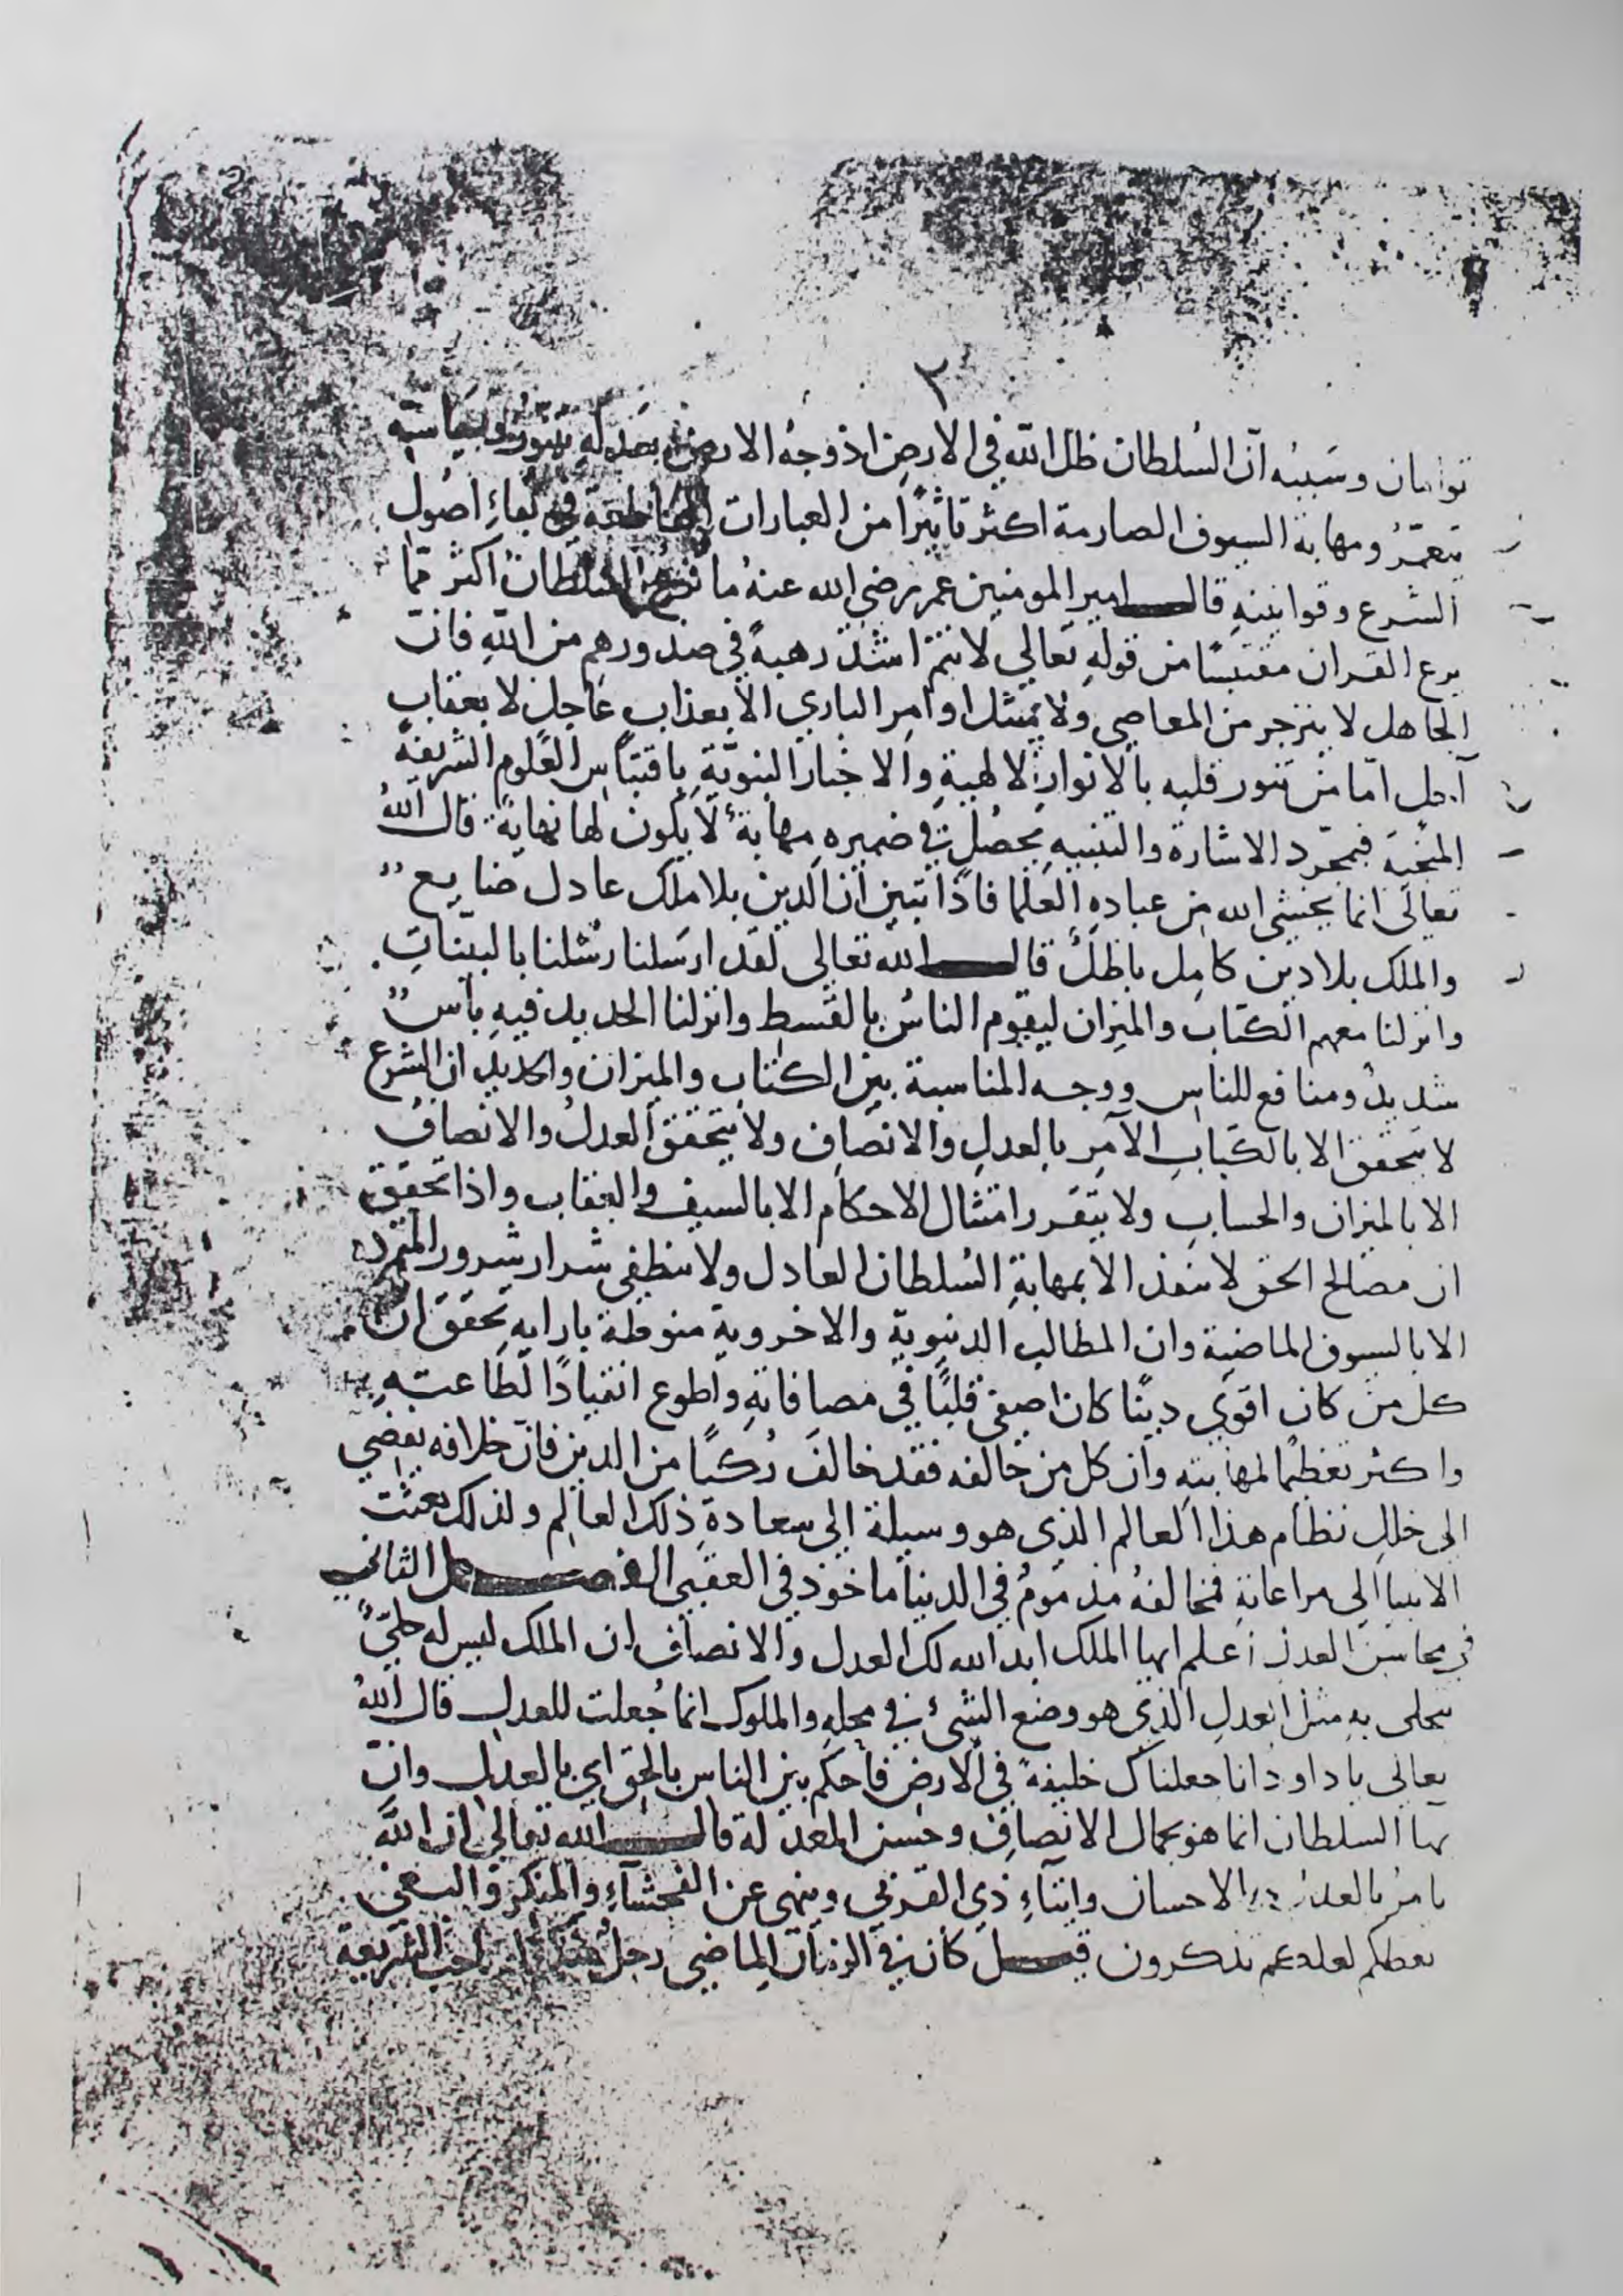 ٣
توامان وسببه ان السلطان ظل الله في الارض اذ وجه الارض بعدله يتنور وبسياسته
يتعمر ومهابة السيوف الصارمة اكثر تاثيرا من العبارات القاطعة في بقاء اصول
الشرع وقوانينه قال امير المومنين عمر رضي الله عنه ما يزع السلطان اكثر مما
يزع القران مقتبسا من قوله تعالي لانتم اشد رهبة في صدورهم من الله فان
الجاهل لا ينزجر من المعاصي ولا يمتثل اوامر الباري الا بعذاب عاجل لا بعقاب
آجل اما من تنور قلبه بالانوار الالهية والاخبار النبوية باقتباس العلوم الشريفة
المنجية فبمجرد الاشارة والتنبيه يحصل في ضميره مهابة لا يكون لها نهاية قال الله
تعالى انما يخشى الله من عباده العلما فاذا تبين ان الدين بلا ملك عادل ضايع
والملك بلا دين كامل باطل قال الله تعالى لقد ارسلنا رسلنا بالبينات
وانزلنا معهم الكتاب والميزان ليقوم الناس بالقسط وانزلنا الحديد فيه باس
شديد ومنافع للناس ووجه المناسبة بين الكتاب والميزان والحديد ان الشرع
لا يتحقق الا بالكتاب الآمر بالعدل والانصاف ولا يتحقق العدل والانصاف
الا بالميزان والحساب ولا يتقرر امتثال الاحكام الا بالسيف والعقاب واذا تحقق
ان مصالح الحق لا تنفذ الا بمهابة السلطان العادل ولا ينطفي شرار شرور المتمرد
الا بالسيوف الماضية وان المطالب الدنيوية والاخروية منوطة بارايه تحقق ان
كل من كان اقوي دينا كان اصفي قلبا في مصافاته واطوع انقيادا لطاعته
واكثر تعظيما لمهابته وان كل من خالفه فقد خالف ركنا من الدين فان خلافه يفضي
الى خلل نظام هذا العالم الذي هو وسيلة الى سعادة ذلك العالم ولذلك بعثت
الانبيا الى مراعاته فمخالفه مذموم في الدنيا ماخوذ في العقبي الفصل الثاني
في محاسن العدل اعلم ايها الملك ابد الله لك العدل والانصاف ان الملك ليس له حلي
يتحلى به مثل العدل الذي هو وضع الشئ في محله والملوك انما جعلت للعدل قال الله
تعالى يا داود انا جعلناك خليفة في الارض فاحكم بين الناس بالحق اي بالعدل وان
بها السلطان انما هو بجمال الانصاف وحسن المعدلة قال الله تعالى ان الله
يامر بالعدل والاحسان وايتاء ذي القربي وينهى عن الفحشآء والمنكر والبغي
يعظكم لعلكم تذكرون قيل كان في الزمان الماضي رجل